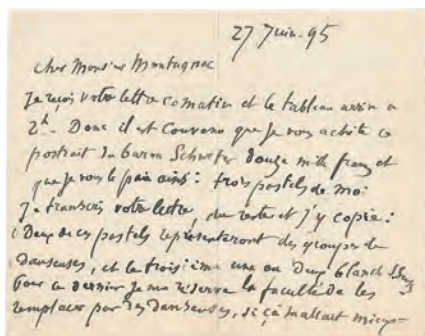 27 Juin. 95
cher Monsieur Montagnac
Je reçois votre lettre ce matin et le tableau arrive a
2h. Donc il est convenu que je vous achète ce
portrait du baron Schwiter douze mille francs et
que je vous le paie ainsi : trois pastels de moi
Je transcris votre lettre, du reste et j'y copie :
"Deux de ces pastels représenteront des groupes de
danseuses, et le troisième une ou deux blanch
Pour ce dernier je me réserve la faculté de les
remplacer par des danseuses, si ça m'allait mieux